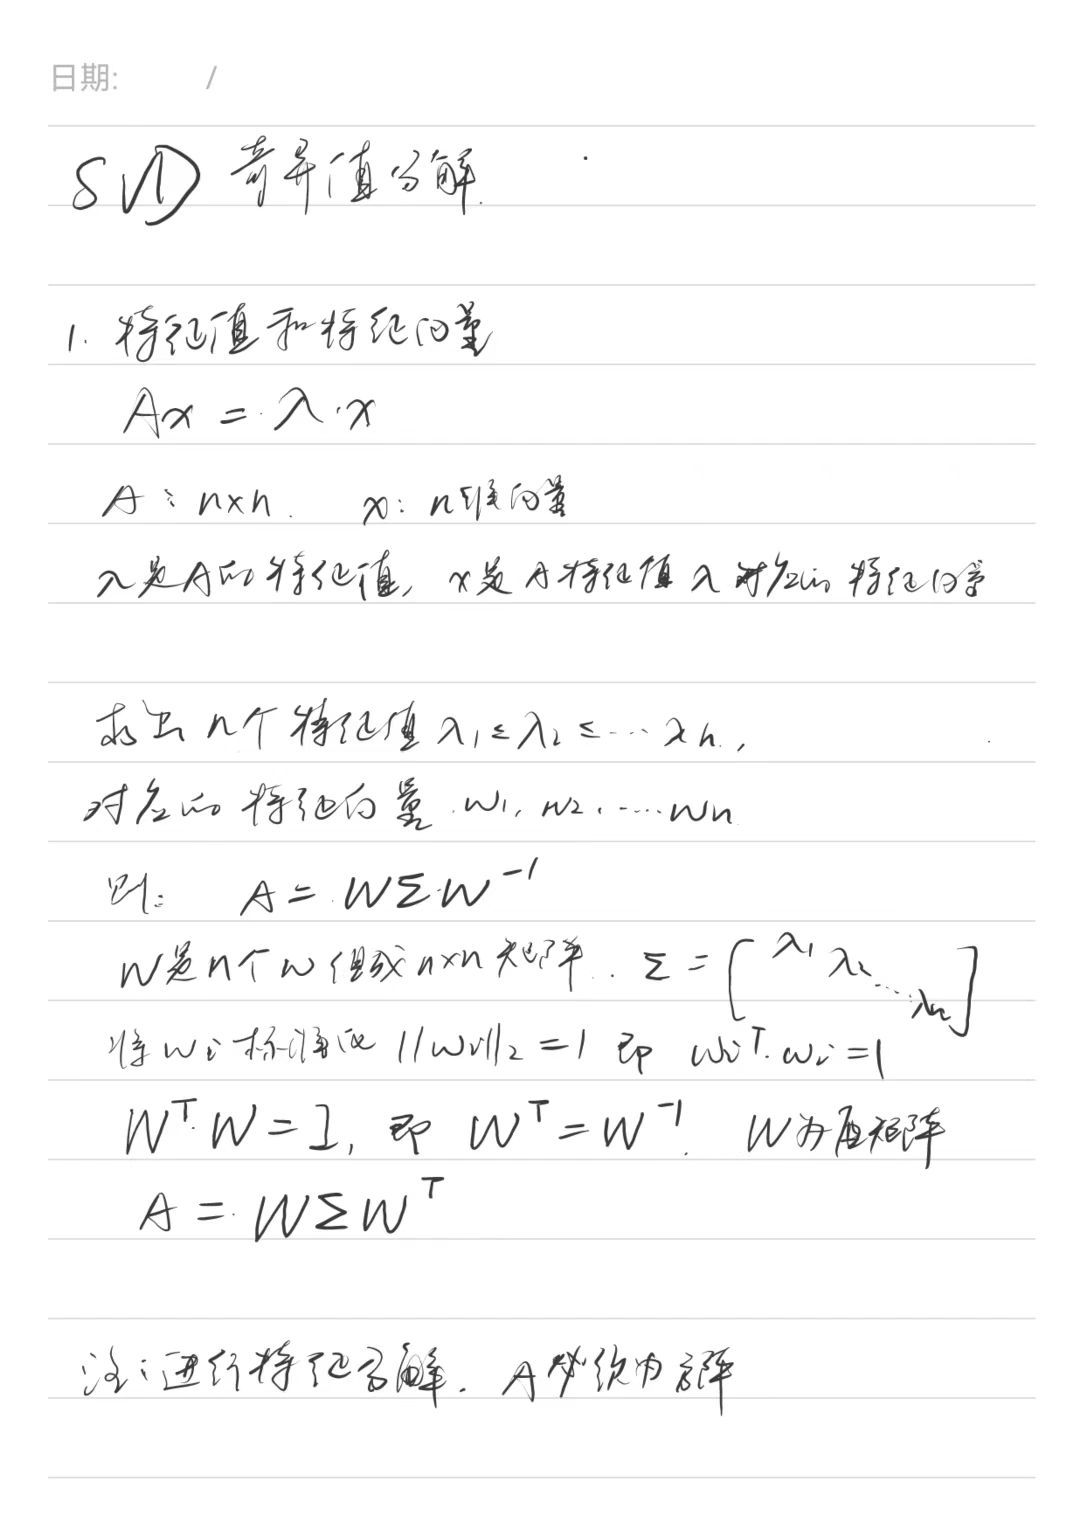 日期: /
SVD 奇异值分解.
1. 特征值和特征向量
Ax = λ·x
A: n×n. x: n维向量
λ是A的特征值, x是A特征值λ对应的特征向量
求出n个特征值 λ₁≤λ₂≤…λn,
对应的特征向量 w₁, w₂, … wn
则: A = WΣW⁻¹
W是n个w组成n×n矩阵. Σ = [λ₁ λ₂ … λn]
将wi标准化 ||wi||₂ = 1 即 wiᵀ·wi = 1
Wᵀ·W = I, 即 Wᵀ = W⁻¹. W为酉矩阵
A = WΣWᵀ
注: 进行特征分解. A必须为方阵